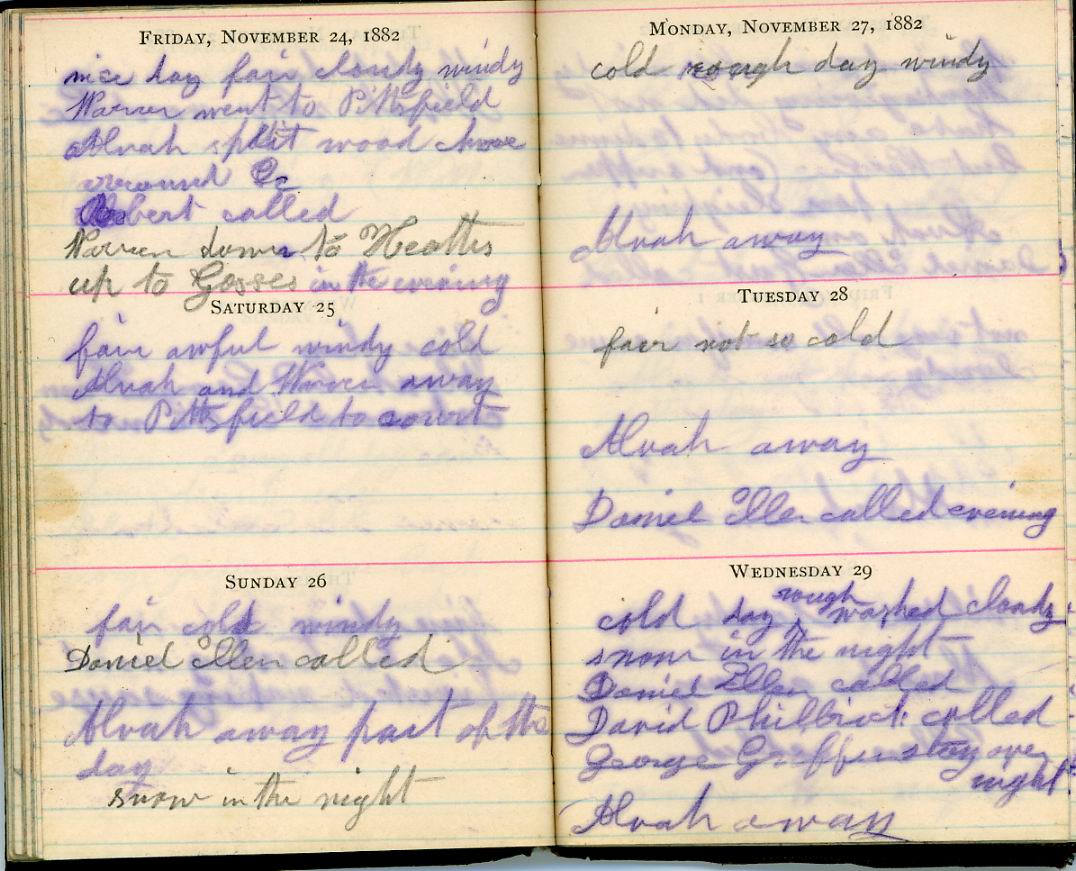 FRIDAY, NOVEMBER 24, 1882
nice day fair cloudy windy
Warren went to Pittsfield
Alvah split wood chore
arround &c
Robert called
Warren down to Heaths
up to Gosses in the evening
SATURDAY 25
fair awful windy cold
Alvah and Warren away
to Pittsfield to court
SUNDAY 26
fair cold windy
Daniel Ellen called
Alvah away part of the
day
snow in the night
MONDAY, NOVEMBER 27, 1882
cold rough day windy
Alvah away
TUESDAY 28
fair not so cold
Alvah away
Daniel Ellen called evening
WEDNESDAY 29
cold day rough washed cloudy
snow in the night
Daniel Ellen called
David Philbrick called
George Griffin stay over
night
Alvah away